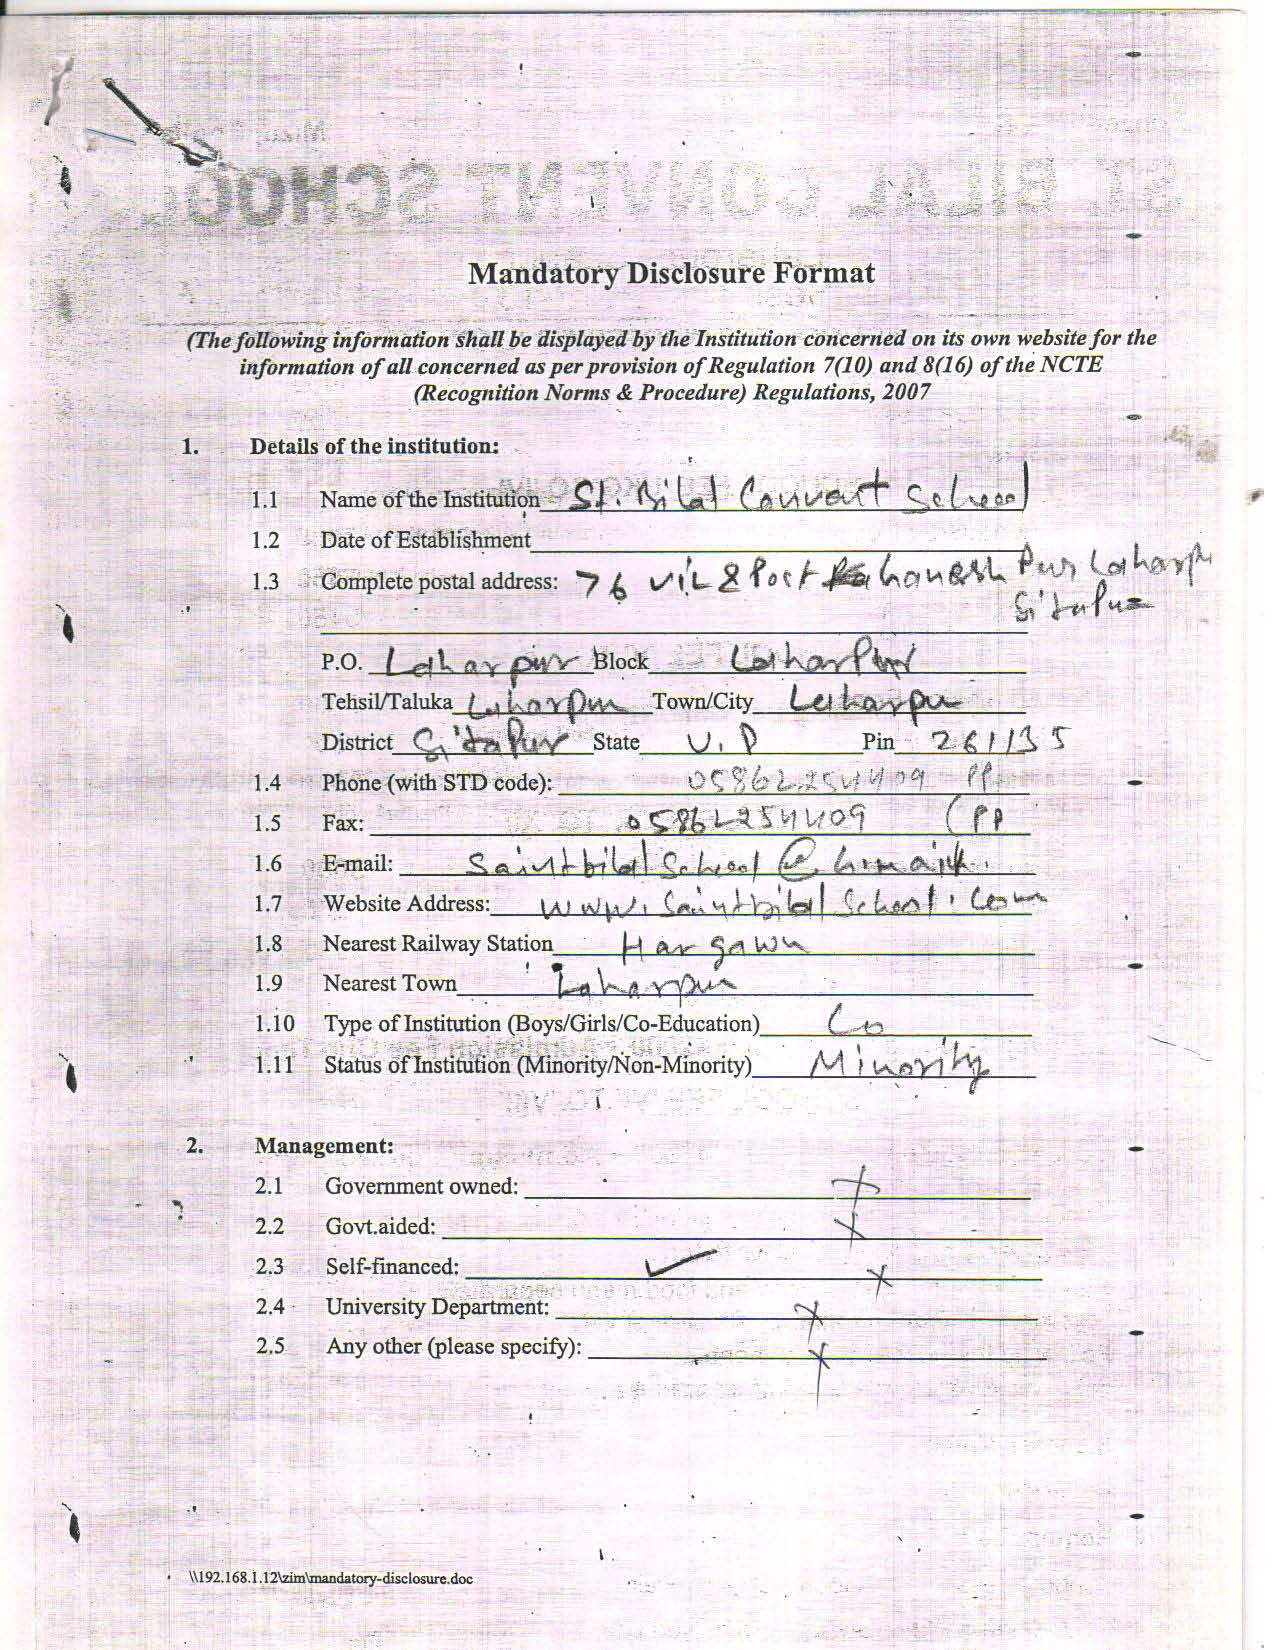 ST. BILAL CONVENT SCHOOL
Mandatory Disclosure Format
(The following information shall be displayed by the Institution concerned on its own website for the
information of all concerned as per provision of Regulation 7(10) and 8(16) of the NCTE
(Recognition Norms & Procedure) Regulations, 2007
1. Details of the institution:
1.1 Name of the Institution St. Bilal Convant School
1.2 Date of Establishment
1.3 Complete postal address: 76 Vil & Post Pur Laharpur
Sitapur
P.O. Laharpur Block Laharpur
Tehsil/Taluka Laharpur Town/City Laharpur
District Sitapur State U.P Pin 261135
1.4 Phone (with STD code): 05862254409 PP
1.5 Fax: 05862254409 (PP
1.6 E-mail: Saintbilal School @
1.7 Website Address: www. Saintbilal School. Com
1.8 Nearest Railway Station Hargawn
1.9 Nearest Town Laharpur
1.10 Type of Institution (Boys/Girls/Co-Education) Co
1.11 Status of Institution (Minority/Non-Minority) Minority
2. Management:
2.1 Government owned: ×
2.2 Govt.aided: ×
2.3 Self-financed: ✓ ×
2.4 University Department: ×
2.5 Any other (please specify): ×
\\192.168.1.12\zim\mandatory-disclosure.doc